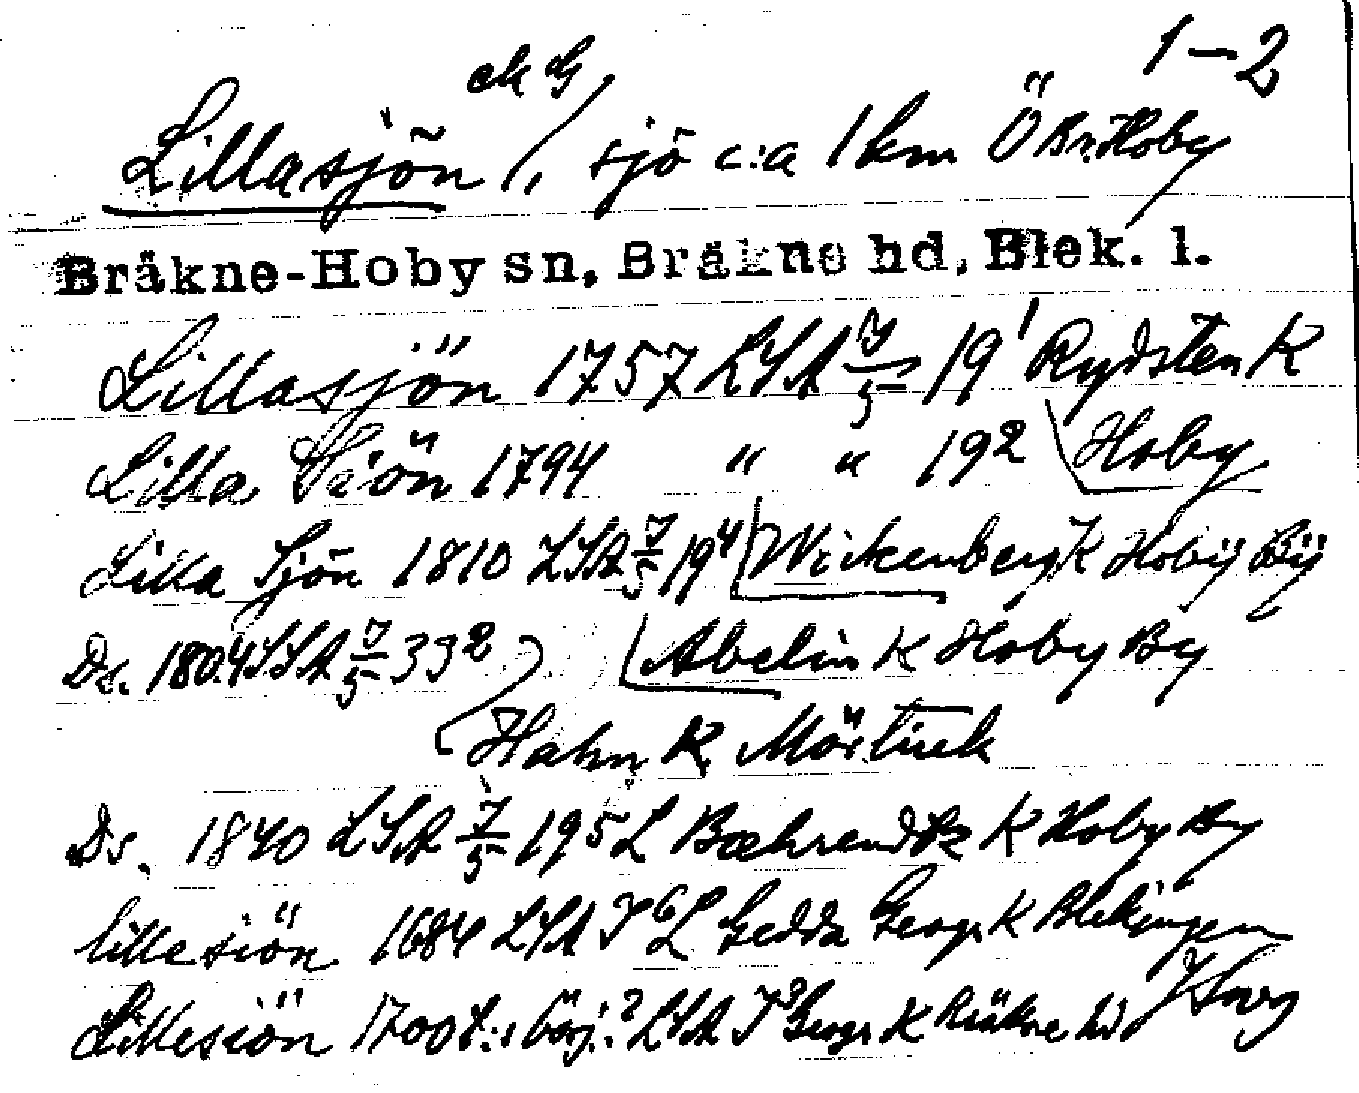 1-2
ek G
Lillasjön, sjö c:a 1 km Ö Br. Hoby
Bräkne-Hoby sn, Bräkne hd, Blek. l.
Lillasjön 1757 LSA 7/5 19¹ Rydsten K
Lilla Siön 1794 " " 19² Hoby
Lilla Sjön 1810 LSA 7/5 19⁴ Wickenberg K Hobÿ Bÿ
Ds. 1804 LSA 7/5 39² Abelin K Hoby By
Hahn K
Ds. 1840 LSA 7/5 19⁵ L K Hoby By
lillesiön 1684 LSA I⁶ L Gedda Geogr K Blekingen
Lillesiön 1700 t:s börj.? LSA I³ Geogr K Bräkne hd